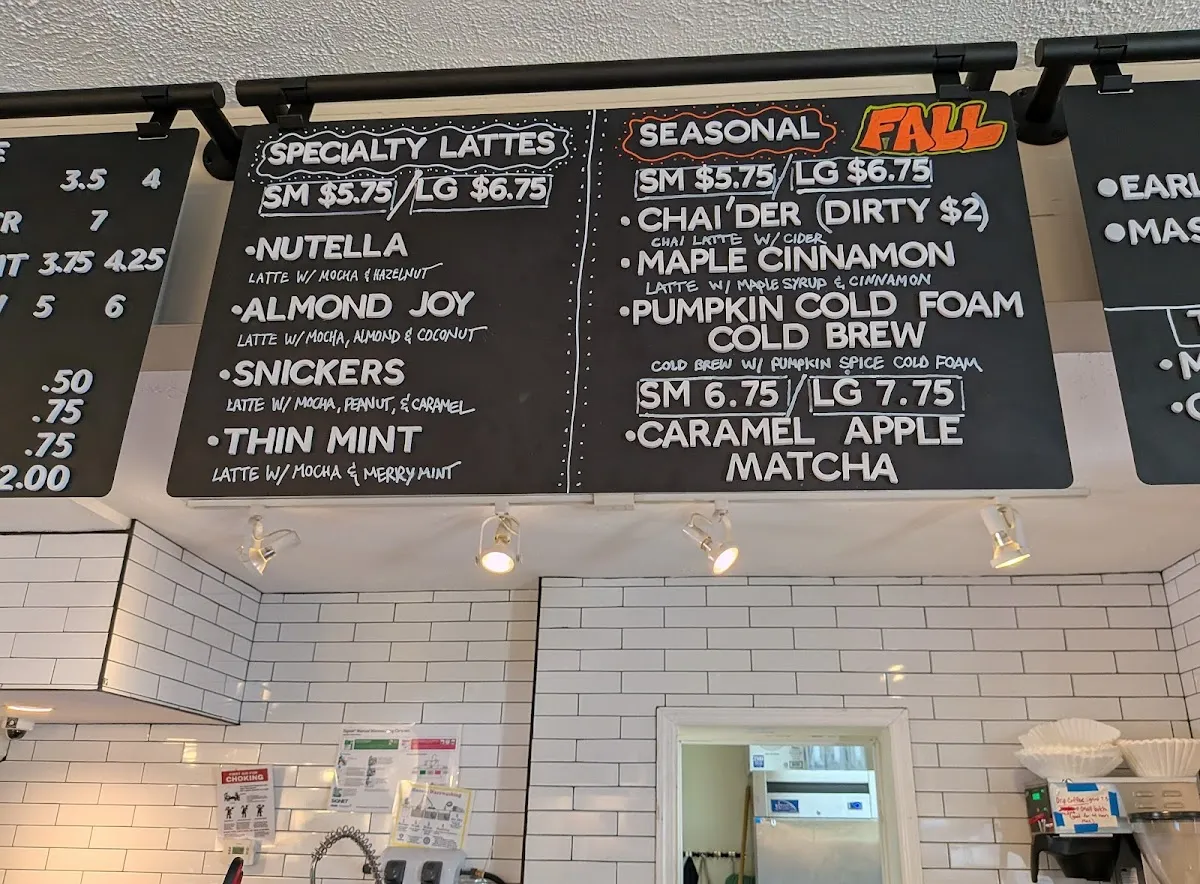 3.5 4
7
3.75 4.25
5 6
.50
.75
.75
2.00
SPECIALTY LATTES
SM $5.75 / LG $6.75
•NUTELLA
LATTE W/ MOCHA & HAZELNUT
•ALMOND JOY
LATTE W/ MOCHA, ALMOND & COCONUT
•SNICKERS
LATTE W/ MOCHA, PEANUT, & CARAMEL
•THIN MINT
LATTE W/ MOCHA & MERRY MINT
SEASONAL FALL
SM $5.75 / LG $6.75
•CHAI'DER (DIRTY $2)
CHAI LATTE W/ CIDER
•MAPLE CINNAMON
LATTE W/ MAPLE SYRUP & CINNAMON
•PUMPKIN COLD FOAM
COLD BREW
COLD BREW W/ PUMPKIN SPICE COLD FOAM
SM 6.75 / LG 7.75
•CARAMEL APPLE
MATCHA
•EARL
•MAS
CHOKING